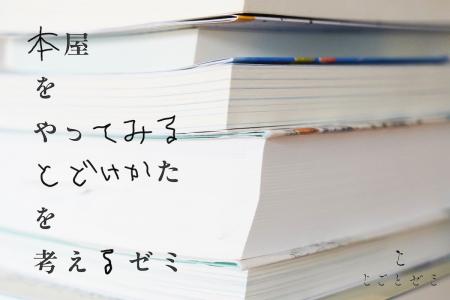 本屋
を
やってみる
とどけかた
を
考えるゼミ
こ
とごとゼミ